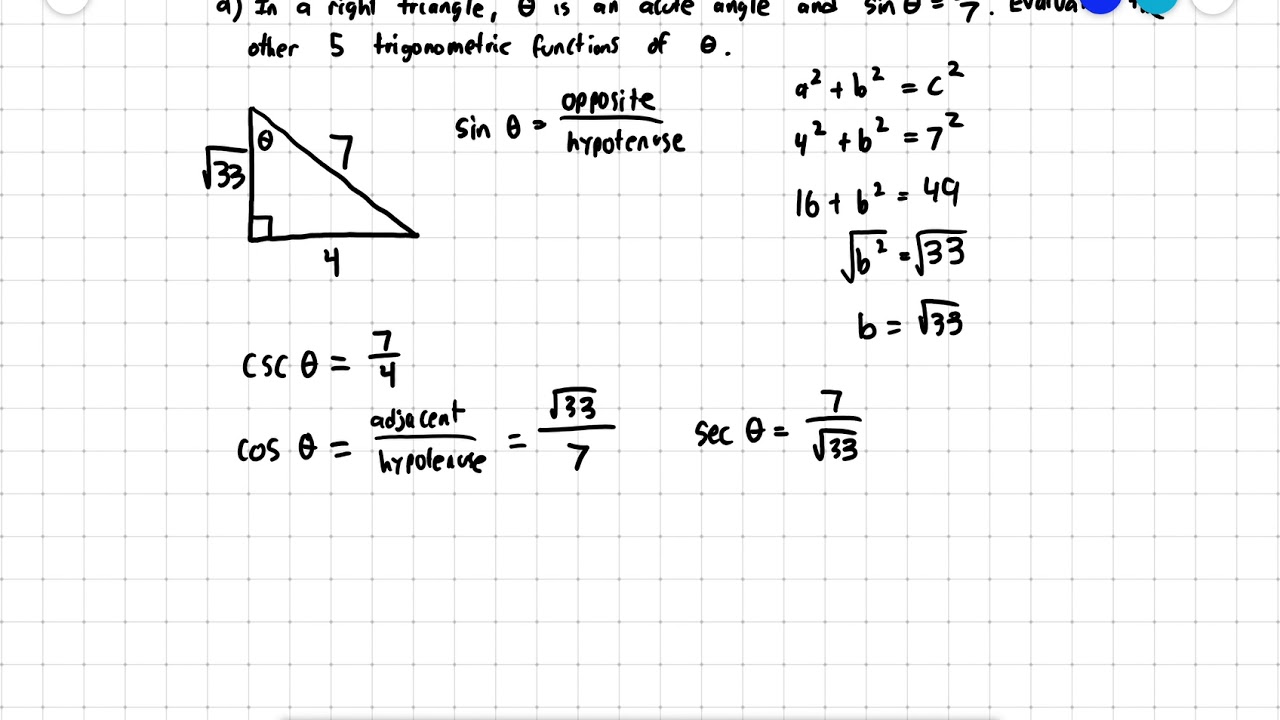 a) In a right triangle, θ is an acute angle and sin θ = /7. Evalua
other 5 trigonometric functions of θ.
θ
7
√33
4
sin θ = opposite/hypotenuse
a² + b² = c²
4² + b² = 7²
16 + b² = 49
√b² = √33
b = √33
csc θ = 7/4
cos θ = adjacent/hypotenuse = √33/7
sec θ = 7/√33